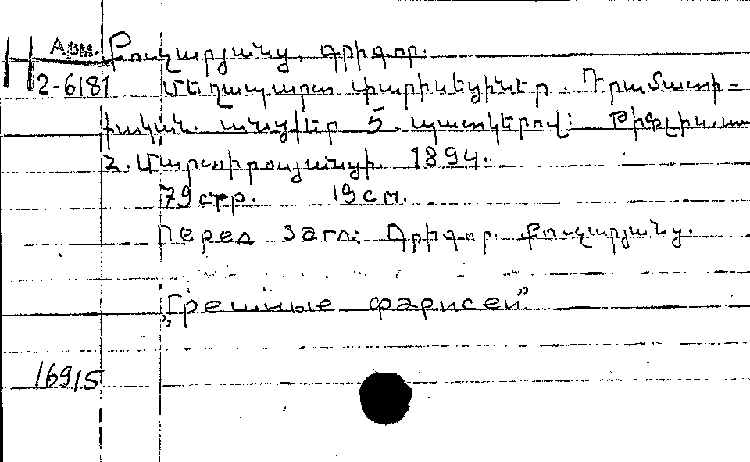 Арм. Քուչարյանց, Գրիգոր.
2-6181 Մեղապարտ փարիսեցիներ. Դրամատի-
կական անցքեր 5 պատկերով: Թիֆլիս, տպ.
Հ. Մարտիրոսյանցի 1894.
79 стр. 19 см.
Перед загл: Գրիգոր. Քուչարյանց.
„Грешные фарисеи"
16915